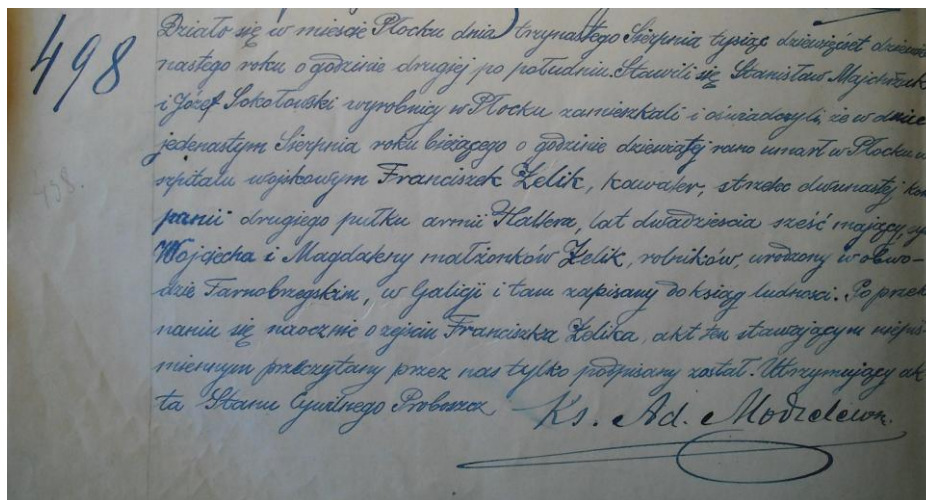 498
Działo się w mieście Płocku dnia trzynastego Sierpnia tysiąc dziewięćset dziewię
nastego roku o godzinie drugiej po południu. Stawili się Stanisław Majchrzak
i Józef Sokołowski wyrobnicy w Płocku zamieszkali i oświadczyli, że w dniu
jedenastym Sierpnia roku bieżącego o godzinie dziewiątej rano umarł w Płocku w
szpitalu wojskowym Franciszek Zelik, kawaler, strzelec dwunastej kom
panii drugiego pułku armii Hallera, lat dwadzieścia sześć mający, syn
Wojciecha i Magdaleny małżonków Zelik, rolników, urodzony w obwo-
dzie Tarnobrzegskim, w Galicji i tam zapisany do ksiąg ludności. Po przek
naniu się naocznie o zejściu Franciszka Zelika, akt ten stawającym niepiś
miennym przeczytany przez nas tylko podpisany został. Utrzymujący ak
ta Stanu Cywilnego Proboszcz
Ks. Ad. Modzelewsk
498.